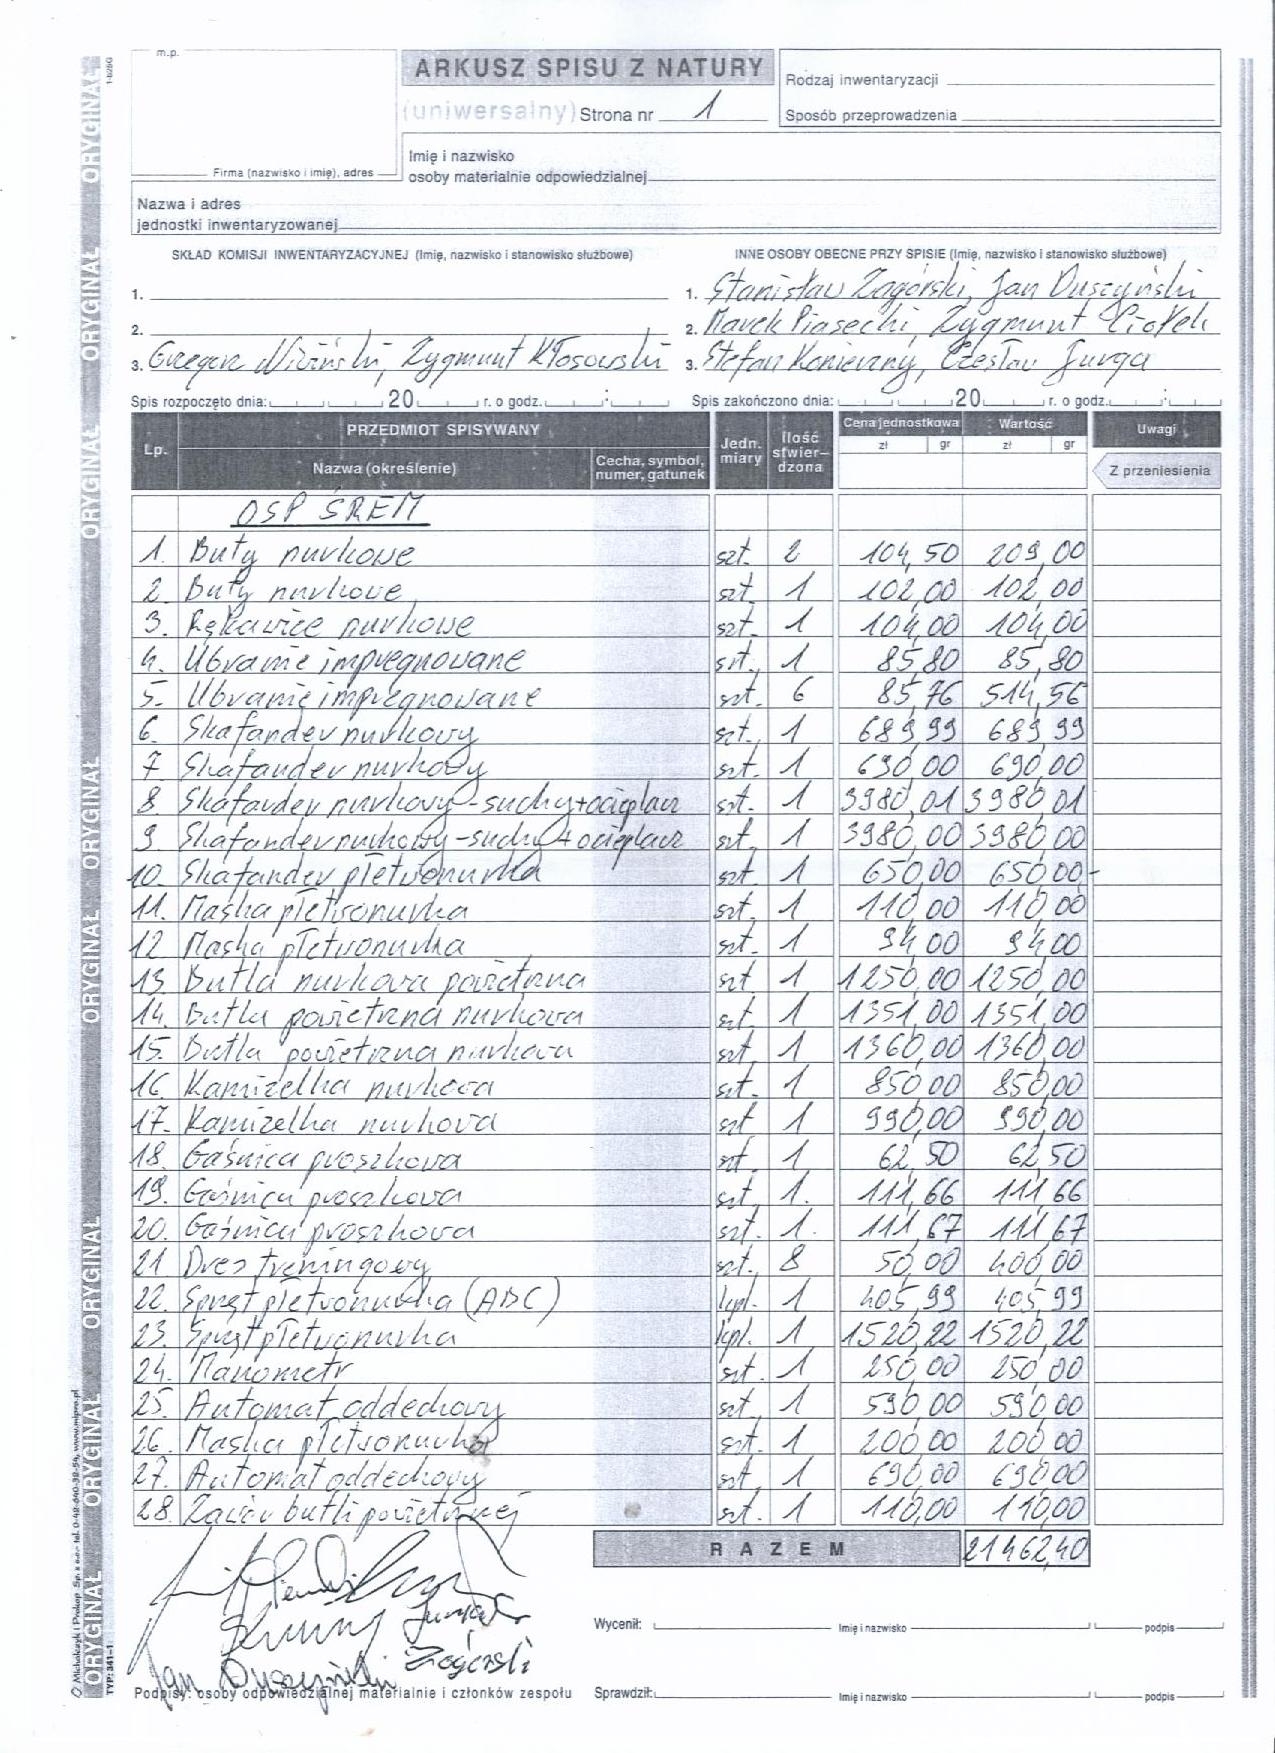 m.p.
ARKUSZ SPISU Z NATURY
(uniwersalny) Strona nr 1
Rodzaj inwentaryzacji
Sposób przeprowadzenia
Firma (nazwisko i imię), adres
Imię i nazwisko
osoby materialnie odpowiedzialnej
Nazwa i adres
jednostki inwentaryzowanej
SKŁAD KOMISJI INWENTARYZACYJNEJ (Imię, nazwisko i stanowisko służbowe)
1.
2.
3. Grzegorz Niziński, Zygmunt Kłosowski
INNE OSOBY OBECNE PRZY SPISIE (Imię, nazwisko i stanowisko służbowe)
1. Stanisław Zagórski, Jan Duszyński
2. Marek Piasecki, Zygmunt Ciołek
3. Stefan Konieczny, Czesław Jurga
Spis rozpoczęto dnia: 20 r. o godz. :
Spis zakończono dnia: 20 r. o godz. :
Lp. PRZEDMIOT SPISYWANY Jedn. miary Ilość stwier-dzona Cena jednostkowa Wartość Uwagi
Nazwa (określenie) Cecha, symbol, numer, gatunek zł gr zł gr Z przeniesienia
OSP ŚREM
1. Buty nurkowe szt. 2 104,50 209,00
2. Buty nurkowe szt. 1 102,00 102,00
3. Rękawice nurkowe szt. 1 104,00 104,00
4. Ubranie impregnowane szt. 1 85,80 85,80
5. Ubranie impregnowane szt. 6 85,76 514,56
6. Skafander nurkowy szt. 1 689,99 689,99
7 Skafander nurkowy szt. 1 690,00 690,00
8 Skafander nurkowy-suchy+ocieplacz szt. 1 3980,01 3980,01
9. Skafander nurkowy-suchy+ocieplacz szt. 1 3980,00 3980,00
10. Skafander płetwonurka szt. 1 650,00 650,00-
11. Maska płetwonurka szt. 1 110,00 110,00
12 Maska płetwonurka szt. 1 94,00 94,00
13. Butla nurkowa powietrzna szt. 1 1250,00 1250,00
14. Butla powietrzna nurkowa szt. 1 1351,00 1351,00
15. Butla powietrzna nurkowa szt. 1 1360,00 1360,00
16. Kamizelka nurkowa szt. 1 850,00 850,00
17. Kamizelka nurkowa szt 1 990,00 990,00
18. Gaśnica proszkowa szt. 1 62,50 62,50
19. Gaśnica proszkowa szt. 1. 111,66 111,66
20. Gaśnica proszkowa szt. 1. 111,67 111,67
21 Dres treningowy szt. 8 50,00 400,00
22. Sprzęt płetwonurka (ABC) kpl. 1 405,99 405,99
23. Sprzęt płetwonurka kpl. 1 1520,22 1520,22
24. Manometr szt. 1 250,00 250,00
25. Automat oddechowy szt. 1 590,00 590,00
26. Maska płetwonurka szt. 1 200,00 200,00
27. Automat oddechowy szt. 1 690,00 690,00
28. Zawór butli powietrznej szt. 1 110,00 110,00
RAZEM 21462,40
Zagórski
Jan Duszyński
Podpisy: osoby odpowiedzialnej materialnie i członków zespołu
Wycenił: Imię i nazwisko podpis
Sprawdził: Imię i nazwisko podpis
ORYGINAŁ ORYGINAŁ ORYGINAŁ ORYGINAŁ ORYGINAŁ ORYGINAŁ ORYGINAŁ ORYGINAŁ
TYP: 341-1